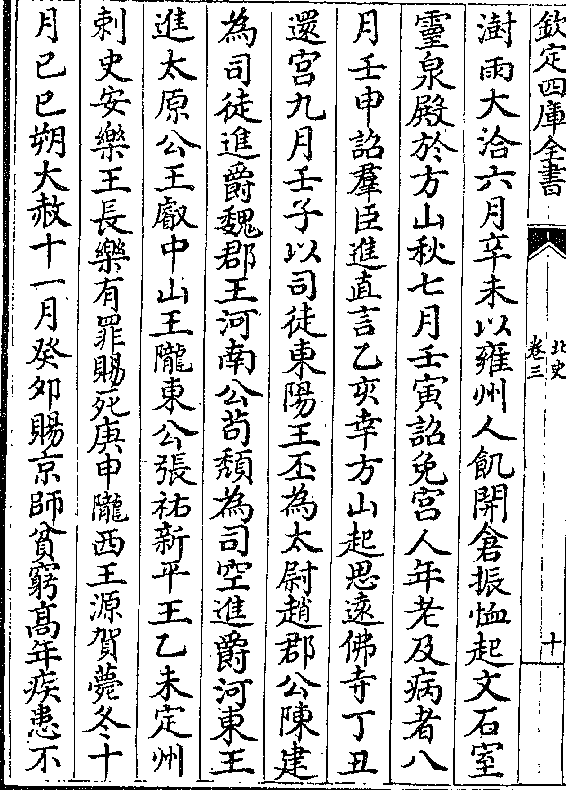 欽定四庫全書
北史
卷三
十
澍雨大洽六月辛未以雍州人飢開倉振恤起文石室
靈泉殿於方山秋七月壬寅詔免宮人年老及病者八
月壬申詔羣臣進直言乙亥幸方山起思遠佛寺丁丑
還宮九月壬子以司徒東陽王丕為太尉趙郡公陳建
為司徒進爵魏郡王河南公茍頹為司空進爵河東王
進太原公王叡中山王隴東公張祐新平王乙未定州
刺史安樂王長樂有罪賜死庚申隴西王源賀薨冬十
月己巳朔大赦十一月癸夘賜京師貧窮高年疾患不